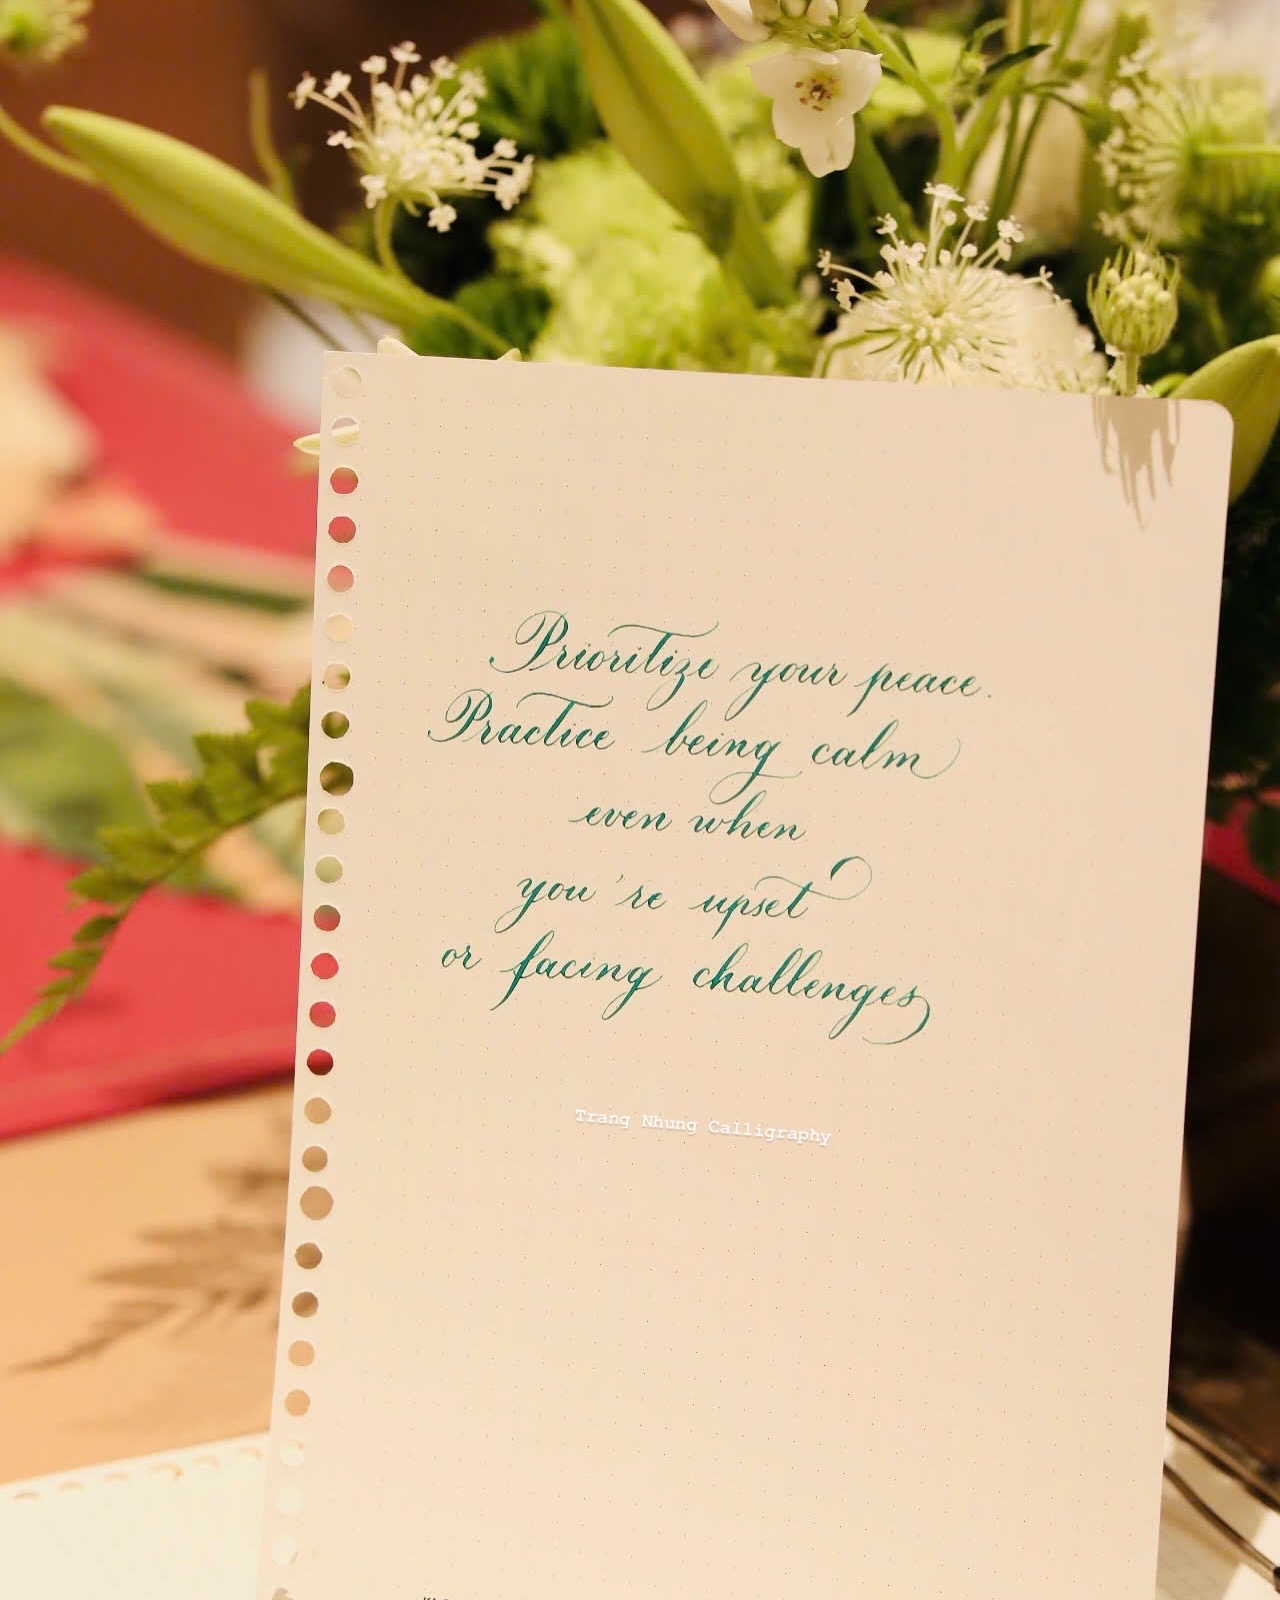 Prioritize your peace.
Practice being calm
even when
you're upset
or facing challenges
Trang Nhung Calligraphy